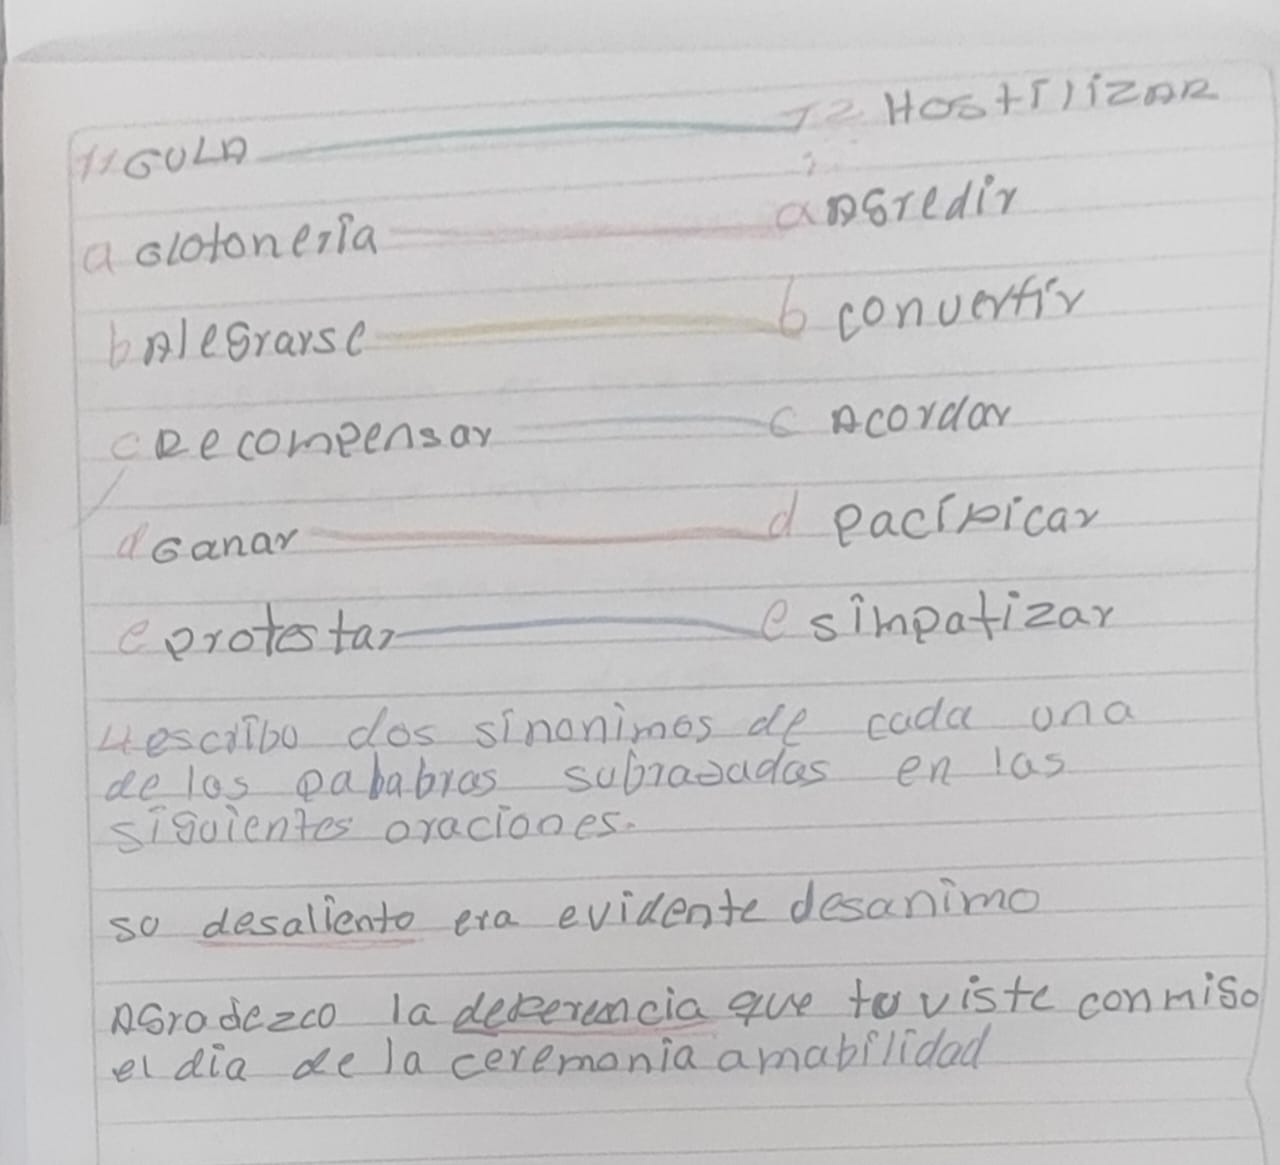 11 GULA 12 HostilizAR
a Glotonería a AGredir
b AleGrarse b convertir
c Recompensar c Acordar
d Ganar d pacificar
e protestar e simpatizar
4 escribo dos sinonimos de cada una
de las pababras subrayadas en las
siguientes oraciones.
su desaliento era evidente desanimo
AGradezco la deferencia que tuviste conmigo
el día de la ceremonia amabilidad